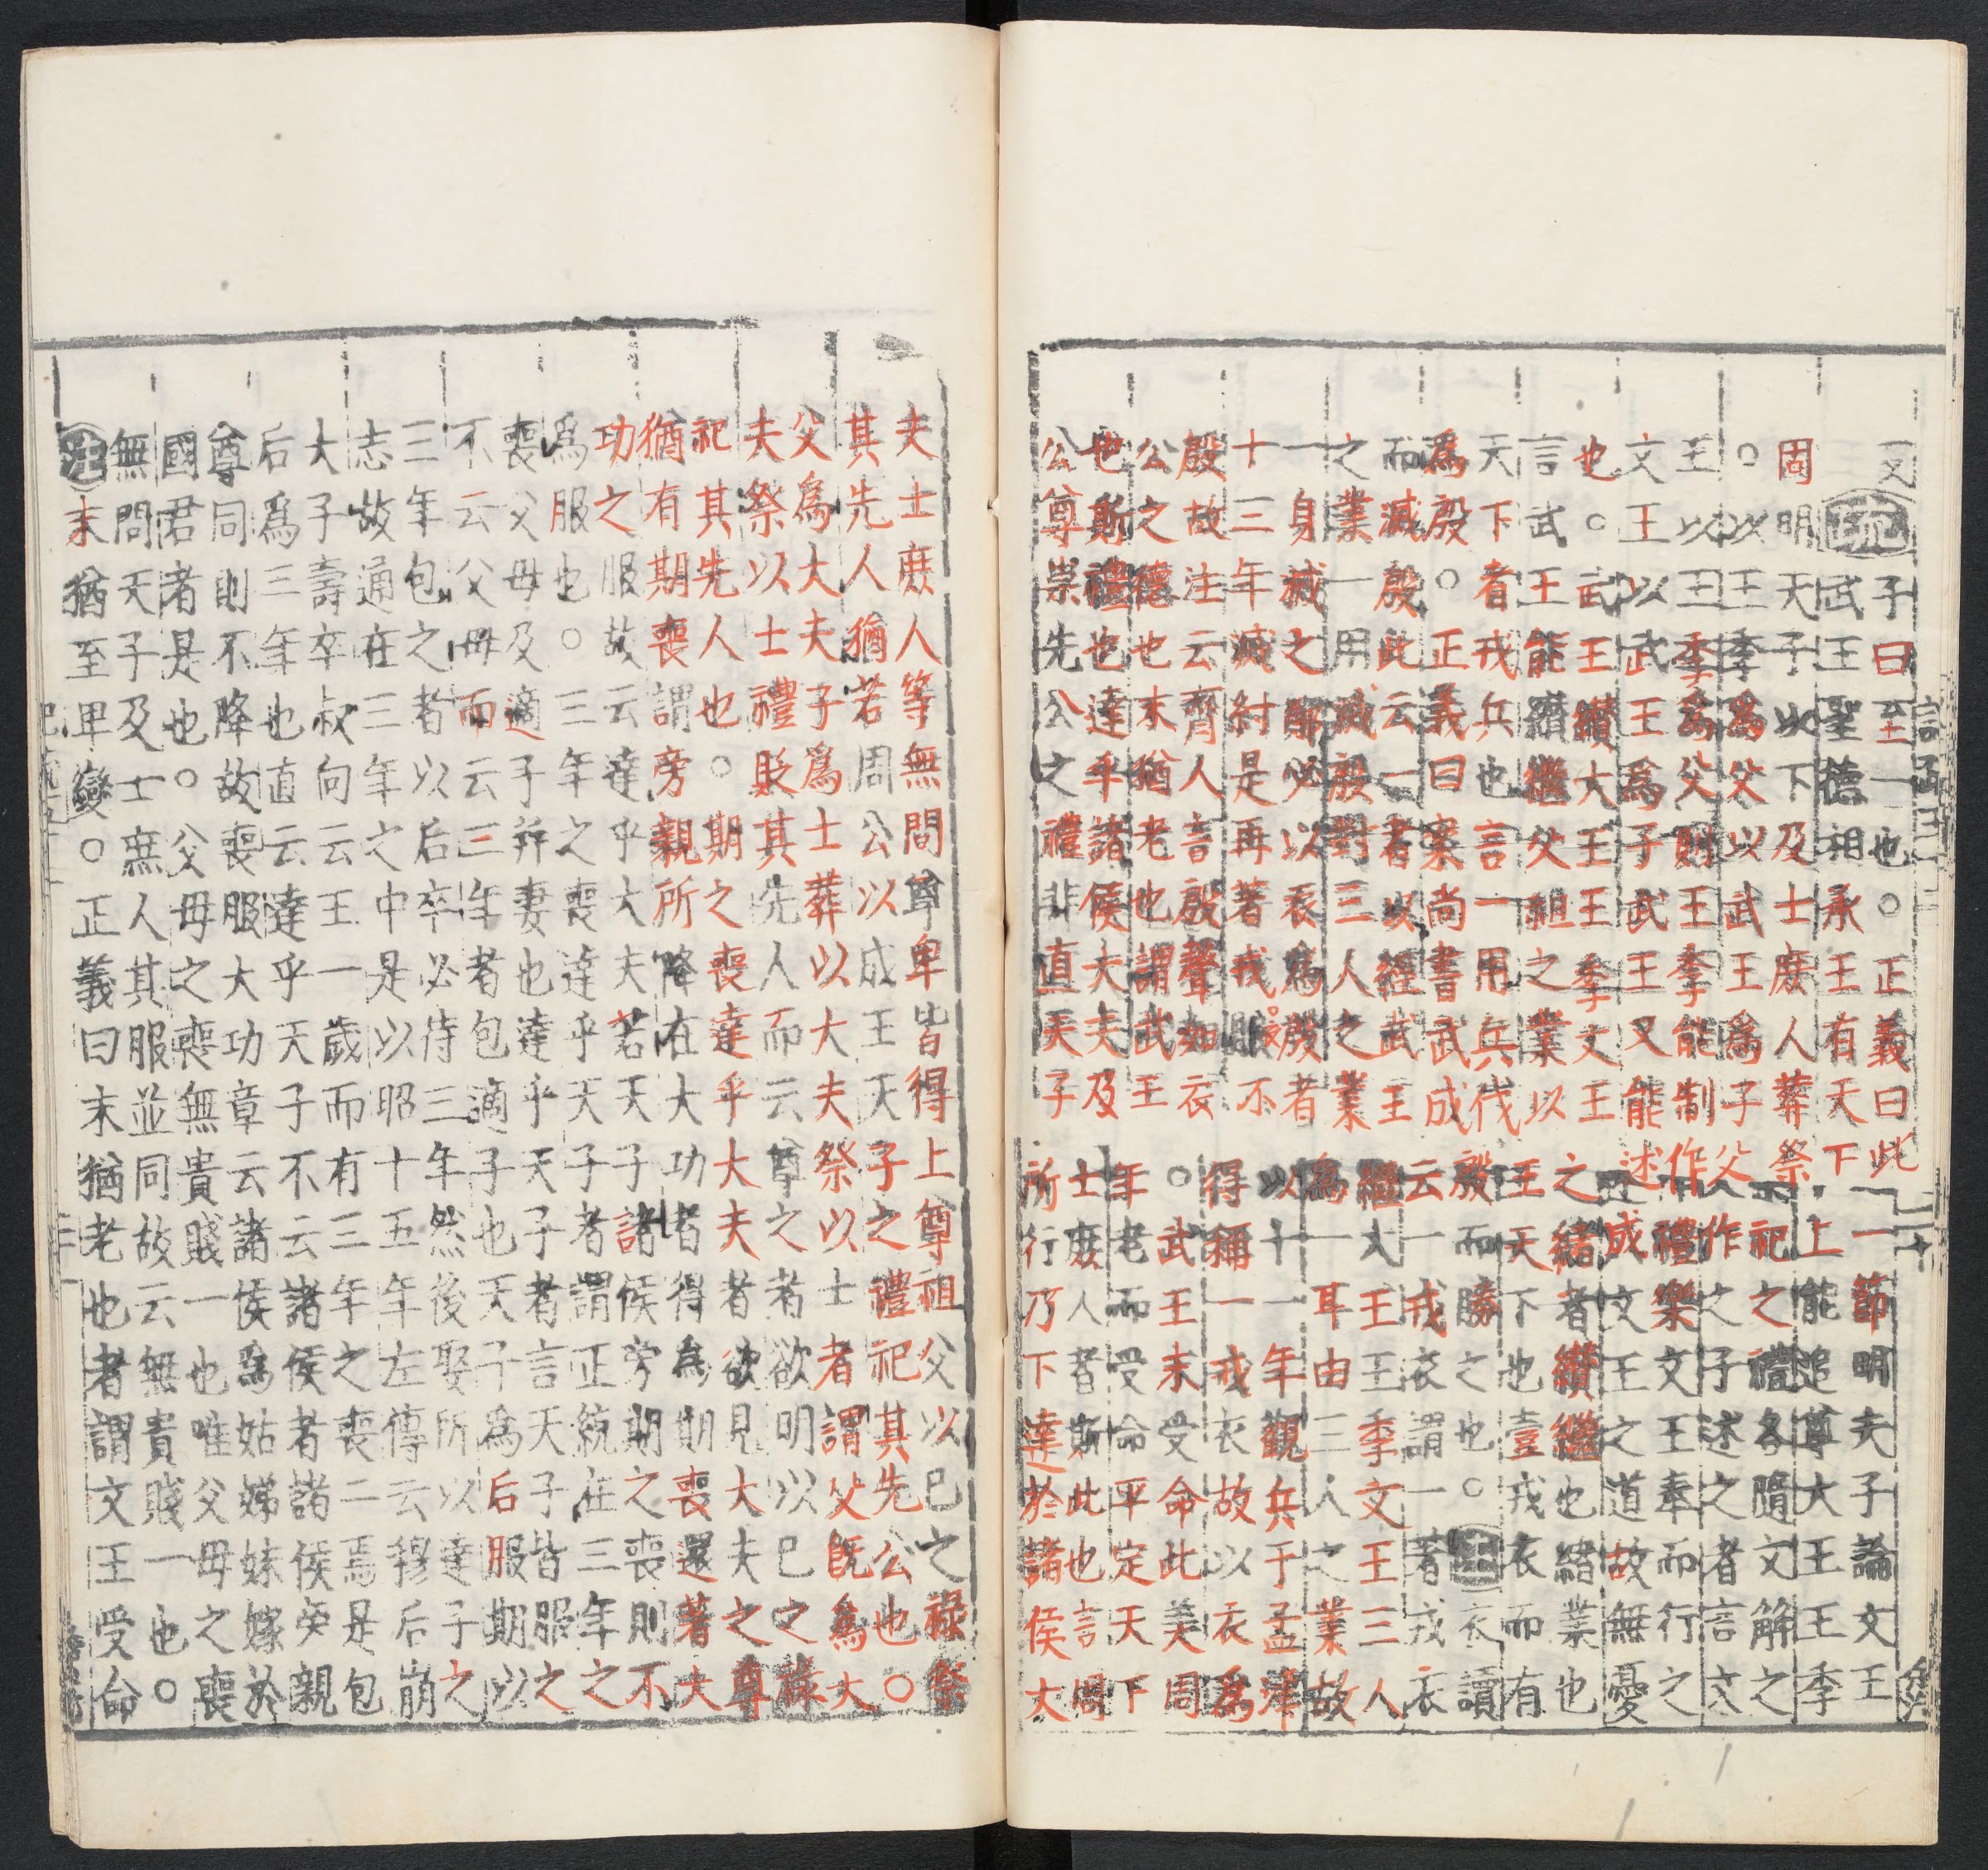 反疏子曰至一也○正義曰此一節明夫子論文王
武王聖德相承王有天下上能追尊大王王季
因明天子以下及士庶人葬祭祀之禮各隨文解之
○以王季爲父以武王爲子父作之子述之者言文
王以王季爲父則王季能制作禮樂文王奉而行之
文王以武王爲子武王又能述成文王之道故無憂
也○武王纘大王王季文王之緒者纘繼也緒業也
言武王能纘繼父祖之業以王天下也壹戎衣而有
天下者戎兵也言一用兵伐殷而勝之也○注衣讀
爲殷○正義曰案尚書武成云一戎衣謂一著戎衣
而滅殷此云一者以經武王繼大王王季文王三人
之業一用滅殷對三人之業爲一耳由三人之業故
一身滅之鄭必以衣爲殷者以十一年觀兵于孟津
十三年滅紂是再著戎服不得稱一戎衣故以衣爲
殷故注云齊人言殷聲如衣○武王末受命此美周
公之德也末猶老也謂武王年老而受命平定天下
也斯禮也達乎諸侯大夫及士庶人者斯此也言周
公尊崇先公之禮非直天子所行乃下達於諸侯大
夫士庶人等無問尊卑皆得上尊祖父以己之祿祭
其先人猶若周公以成王天子之禮祀其先公也○
父爲大夫子爲士葬以大夫祭以士者謂父旣爲大
夫祭以士禮貶其先人而云尊之者欲明以己之祿
祀其先人也○期之喪達乎大夫者欲見大夫之尊
猶有期喪謂旁親所降在大功者得爲期喪還著大
功之服故云達乎大夫若天子諸侯旁期之喪則不
爲服也○三年之喪達乎天子者謂正統在三年之
喪父母及適子幷妻也達乎天子者言天子皆服之
不云父母而云三年者包適子也天子爲后服期以
三年包之者以后卒必待三年然後娶所以達子之
志故通在三年之中是以昭十五年左傳云穆后崩
大子壽卒叔向云王一歲而有三年之喪二焉是包
后爲三年也直云達乎天子不云諸侯者諸侯旁親
尊同則不降故喪服大功章云諸侯爲姑姊妹嫁於
國君者是也○父母之喪無貴賤一也唯父母之喪
無問天子及士庶人其服並同故云無貴賤一也○
注末猶至卑變○正義曰末猶老也者謂文王受命